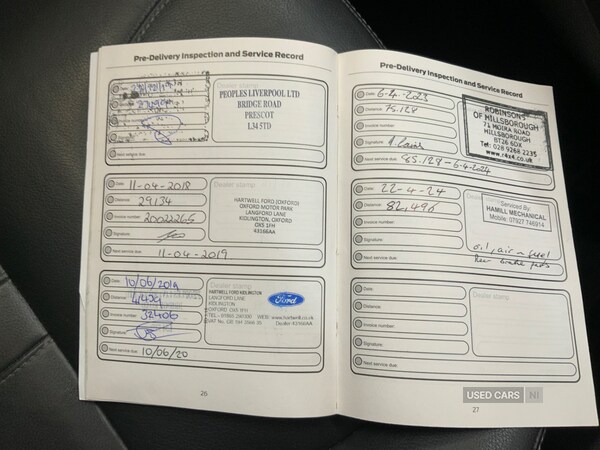 Pre-Delivery Inspection and Service Record
Date:
Dealer stamp
PEOPLES LIVERPOOL LTD
BRIDGE ROAD
PRESCOT
L34 5TD
Next service due:
Date: 11-04-2018
Distance: 29134
Invoice number:
Signature:
Next service due: 11-04-2019
Dealer stamp
HARTWELL FORD (OXFORD)
OXFORD MOTOR PARK
LANGFORD LANE
KIDLINGTON, OXFORD
OX5 1FH
43166AA
Date: 10/06/2019
Distance:
Invoice number: 32406
Signature:
Next service due: 10/06/20
Dealer stamp
HARTWELL FORD KIDLINGTON
LANGFORD LANE
KIDLINGTON
OXFORD OX5 1FH
Ford
WEB: www.hartwell.co.uk
Dealer 43166AA
26
Pre-Delivery Inspection and Service Record
Date: 6-4-2023
Distance: 75,128
Invoice number:
Signature:
Next service due: 85,128 - 6-4-2024
ROBINSONS
OF HILLSBOROUGH
71 MOIRA ROAD
HILLSBOROUGH
BT26 6DX
Tel: 028 9268 2235
www.r4x4.co.uk
Date: 22-4-24
Distance: 82,490
Invoice number:
Signature:
Next service due:
Serviced By
HAMILL MECHANICAL
Mobile: 07827 746914
oil, air - fuel
Rear brake pads
Date:
Distance:
Invoice number:
Signature:
Next service due:
Dealer stamp
27
USED CARS NI